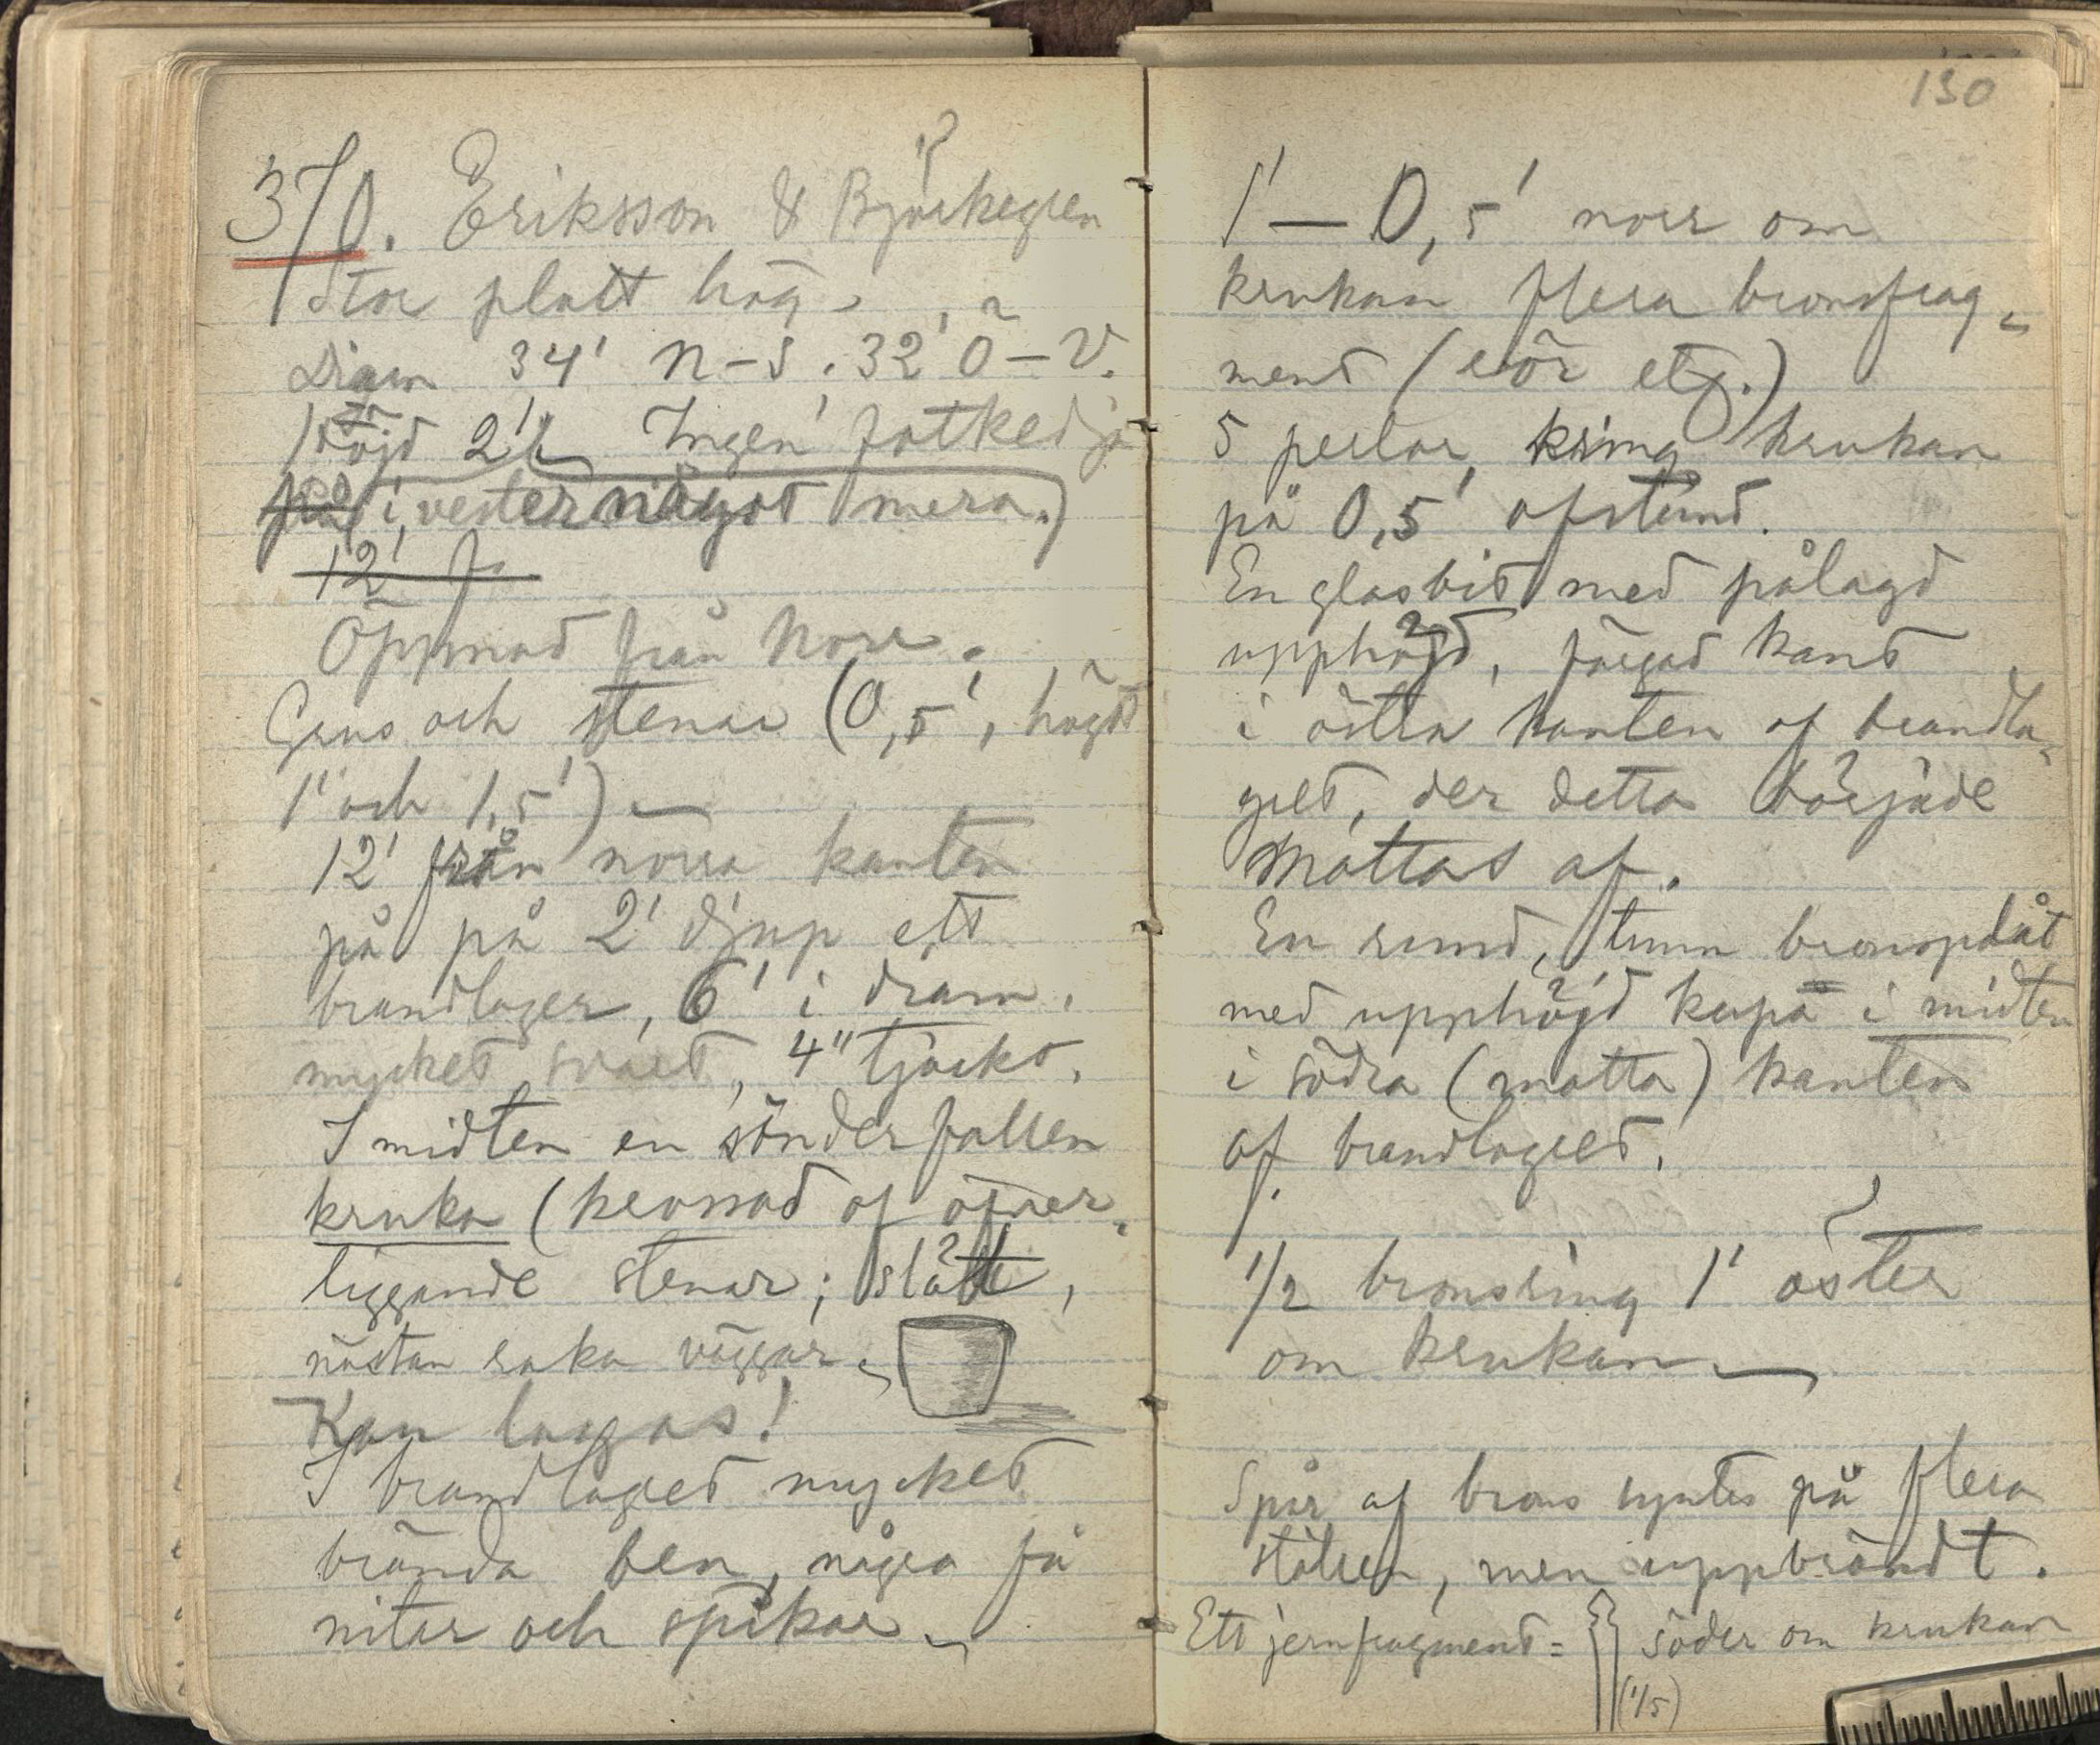 370. Eriksson & Björkegren
Stor platt hög.
Diam 34' N–S. 32' Ö–V.
Höjd 2' Ingen fotkedja
i vester något mera.)
12' f
Öppnad från Norr.
Grus och stenar (0,5', högst
1' och 1,5')
12' från norra kanten
på på 2' djup ett
brandlager, 6' i diam.
mycket svart, 4" tjockt.
I midten en sönderfallen
kruka (krossad af öfver-
liggande stenar; slät,
nästan raka väggar.
Kan lagas!
I brandlagret mycket
brända ben, några få
nitar och spikar
130
1' — 0,5' norr om
krukan flera bronsfrag-
ment (rör etc.)
5 perlor, kring krukan
på 0,5' afstånd.
En glasbit med pålagd
upphöjd, färgad kant
i östra kanten af brandla-
gret, der detta började
mattas af.
En rund, tunn bronsplåt
med upphöjd kupa i midten
i södra (matta) kanten
af brandlagret.
1/2 bronsring 1' öster
om krukan
Spår af brons syntes på flera
ställen, men uppbrändt.
Ett jernfragment = söder om krukan
(1/5)